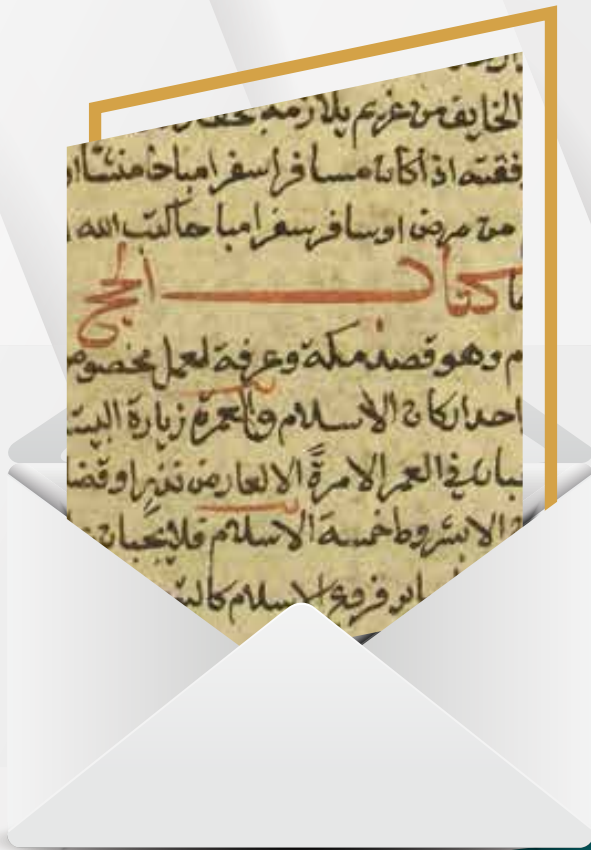 الخايف من غريم يلازمه
فقته اذا كانا مسافرا سفرا مباحا منشا
من مرض او سافر سفرا مباحا كتب الله
كتاب الحج
م وهو قصد مكة وعرفة لعمل مخصوص
احد اركان الاسلام والعمرة زيارة البيت
جبان في العمر الا مرةً الا لعارض نذر او قضا
الا بشروط خمسة الاسلام فلا يجبان
فروع الاسلام